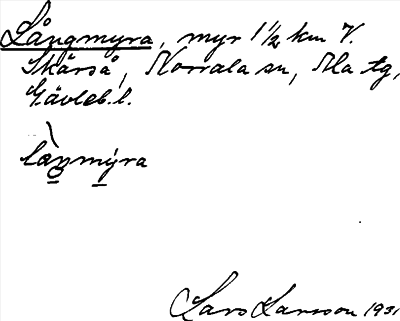 Långmyra, myr 1 1/2 km V.
Skärså, Norrala sn, Ala tg,
Gävleb. l.
lar Larsson 1931